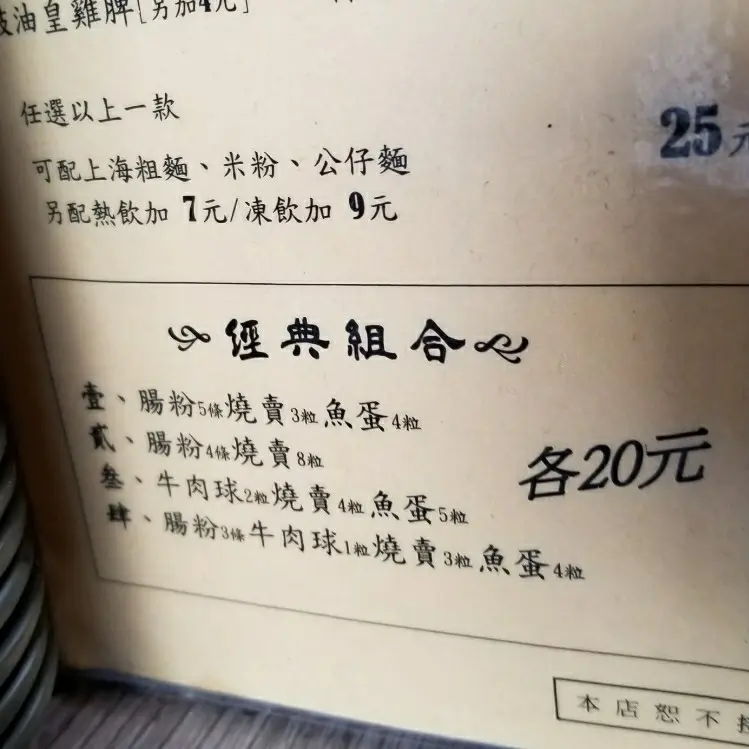 油皇雞脾[另加4元]
任選以上一款
25元
可配上海粗麵、米粉、公仔麵
另配熱飲加 7元/凍飲加 9元
經典組合
壹、腸粉5條燒賣3粒魚蛋4粒
貳、腸粉4條燒賣8粒
叁、牛肉球2粒燒賣4粒魚蛋5粒
肆、腸粉3條牛肉球1粒燒賣3粒魚蛋4粒
各20元
本店恕不